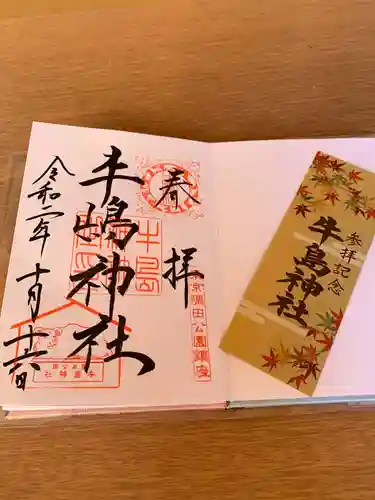 奉拝
牛嶋神社
令和二年十月十六日
東京隅田公園鎮座
牛島
参拝記念
牛島神社